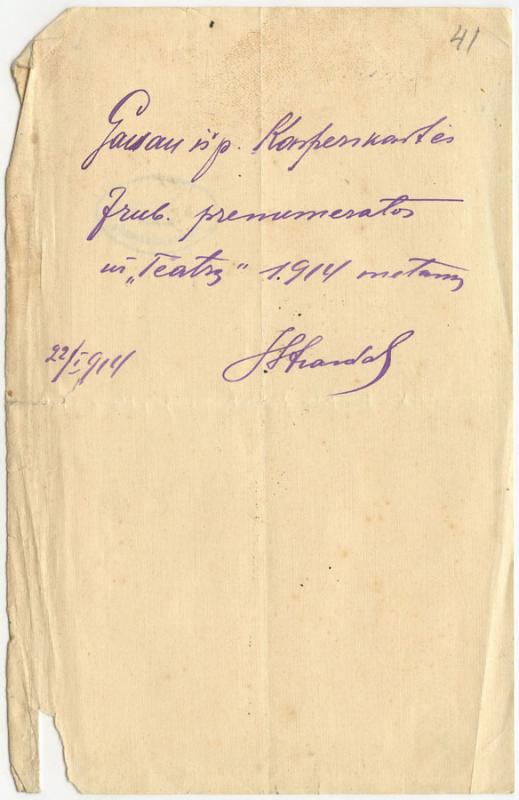 41
Gavau iš p. Kasperskaitės
7 rub. prenumeratos
už „Teatrą" 1914 metams
22/I 914